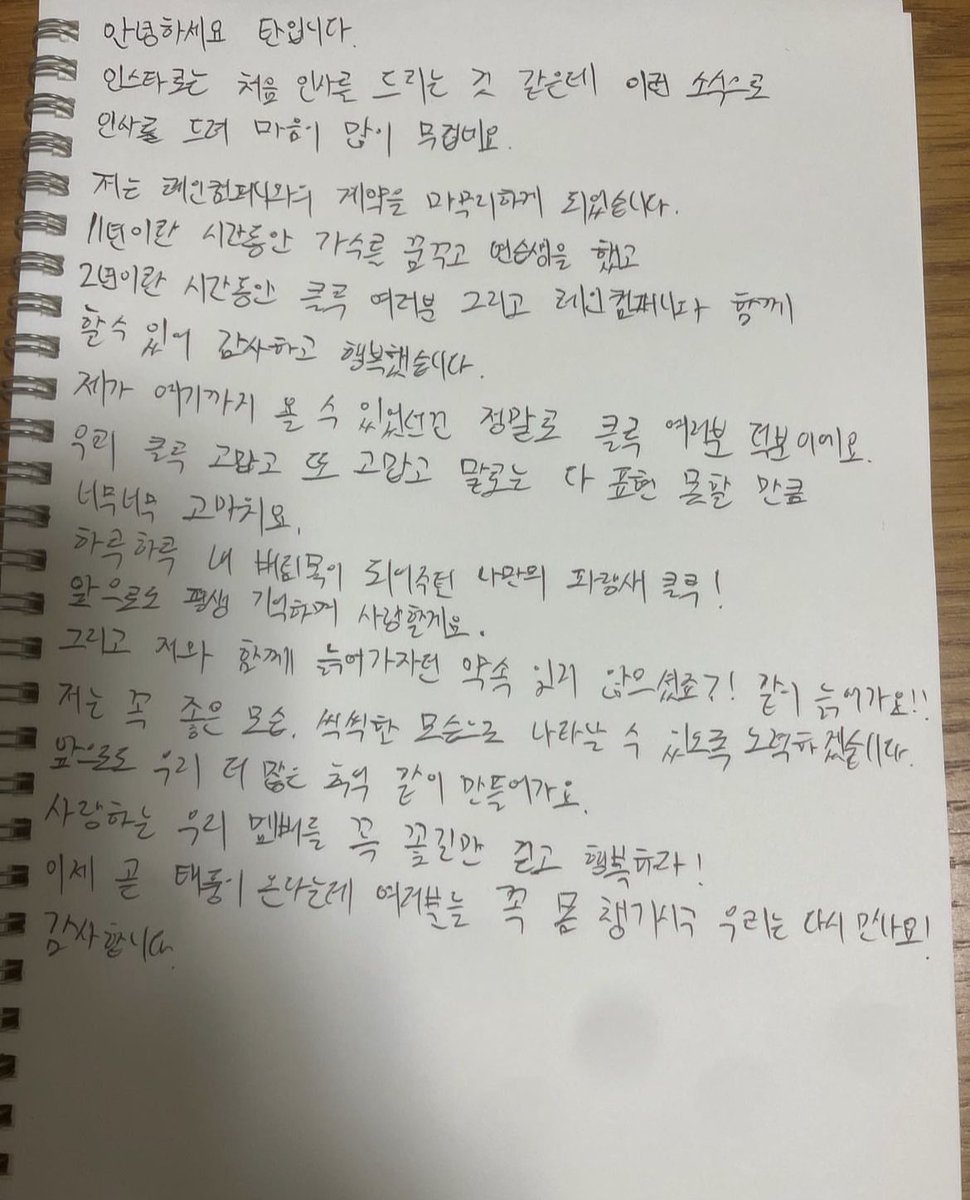 안녕하세요 탄입니다.
인스타로는 처음 인사를 드리는 것 같은데 이런 소식으로
인사를 드려 마음이 많이 무겁네요.
저는 레인컴퍼니와의 계약을 마무리하게 되었습니다.
11년이란 시간동안 가수를 꿈꾸고 연습생을 했고
2년이란 시간동안 클륵 여러분 그리고 레인컴퍼니와 함께
할 수 있어 감사하고 행복했습니다.
제가 여기까지 올 수 있었던건 정말로 클륵 여러분 덕분이에요.
우리 클륵 고맙고 또 고맙고 말로는 다 표현 못할 만큼
너무너무 고마치요.
하루하루 내 버팀목이 되어주던 나만의 파랑새 클륵!
앞으로도 평생 기억하며 사랑할게요.
그리고 저와 함께 늙어가자던 약속 잊지 않으셨죠?! 같이 늙어가요!!
저는 꼭 좋은 모습, 씩씩한 모습으로 나타날 수 있도록 노력하겠습니다.
앞으로도 우리 더 많은 추억 같이 만들어가요.
사랑하는 우리 멤버들 꼭 꽃길만 걷고 행복하라!
이제 곧 태풍이 온다는데 여러분들 꼭 몸 챙기시구 우리는 다시 만나요!
감사합니다.